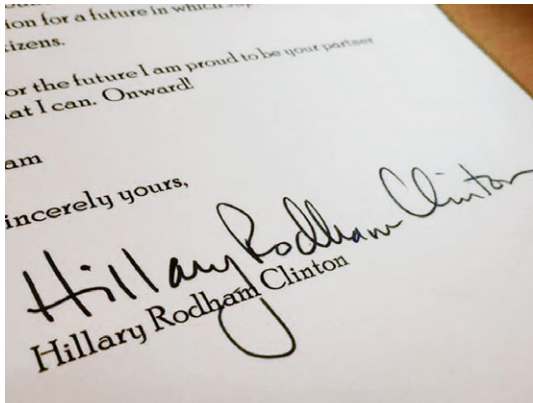 ion for a future in which
izens.
or the future I am proud to be your partner
at I can. Onward!
am
incerely yours,
Hillary Rodham Clinton
Hillary Rodham Clinton